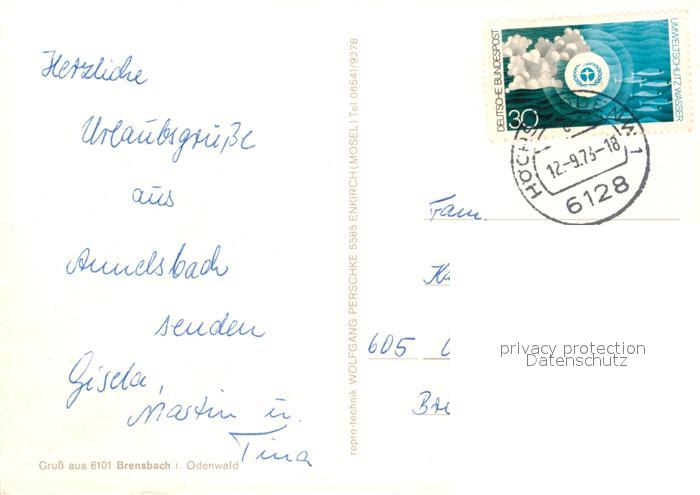 Herzliche
Urlaubsgrüße
aus
Annelsbach
senden
Gisela,
Martin u.
Tina
Gruß aus 6101 Brensbach i. Odenwald
repro-technik WOLFGANG PERSCHKE 5585 ENKIRCH (MOSEL) Tel 06541/9278
DEUTSCHE BUNDESPOST
30
UMWELTSCHUTZ WASSER
12.-9.73-18
6128
Fam.
605
privacy protection
Datenschutz